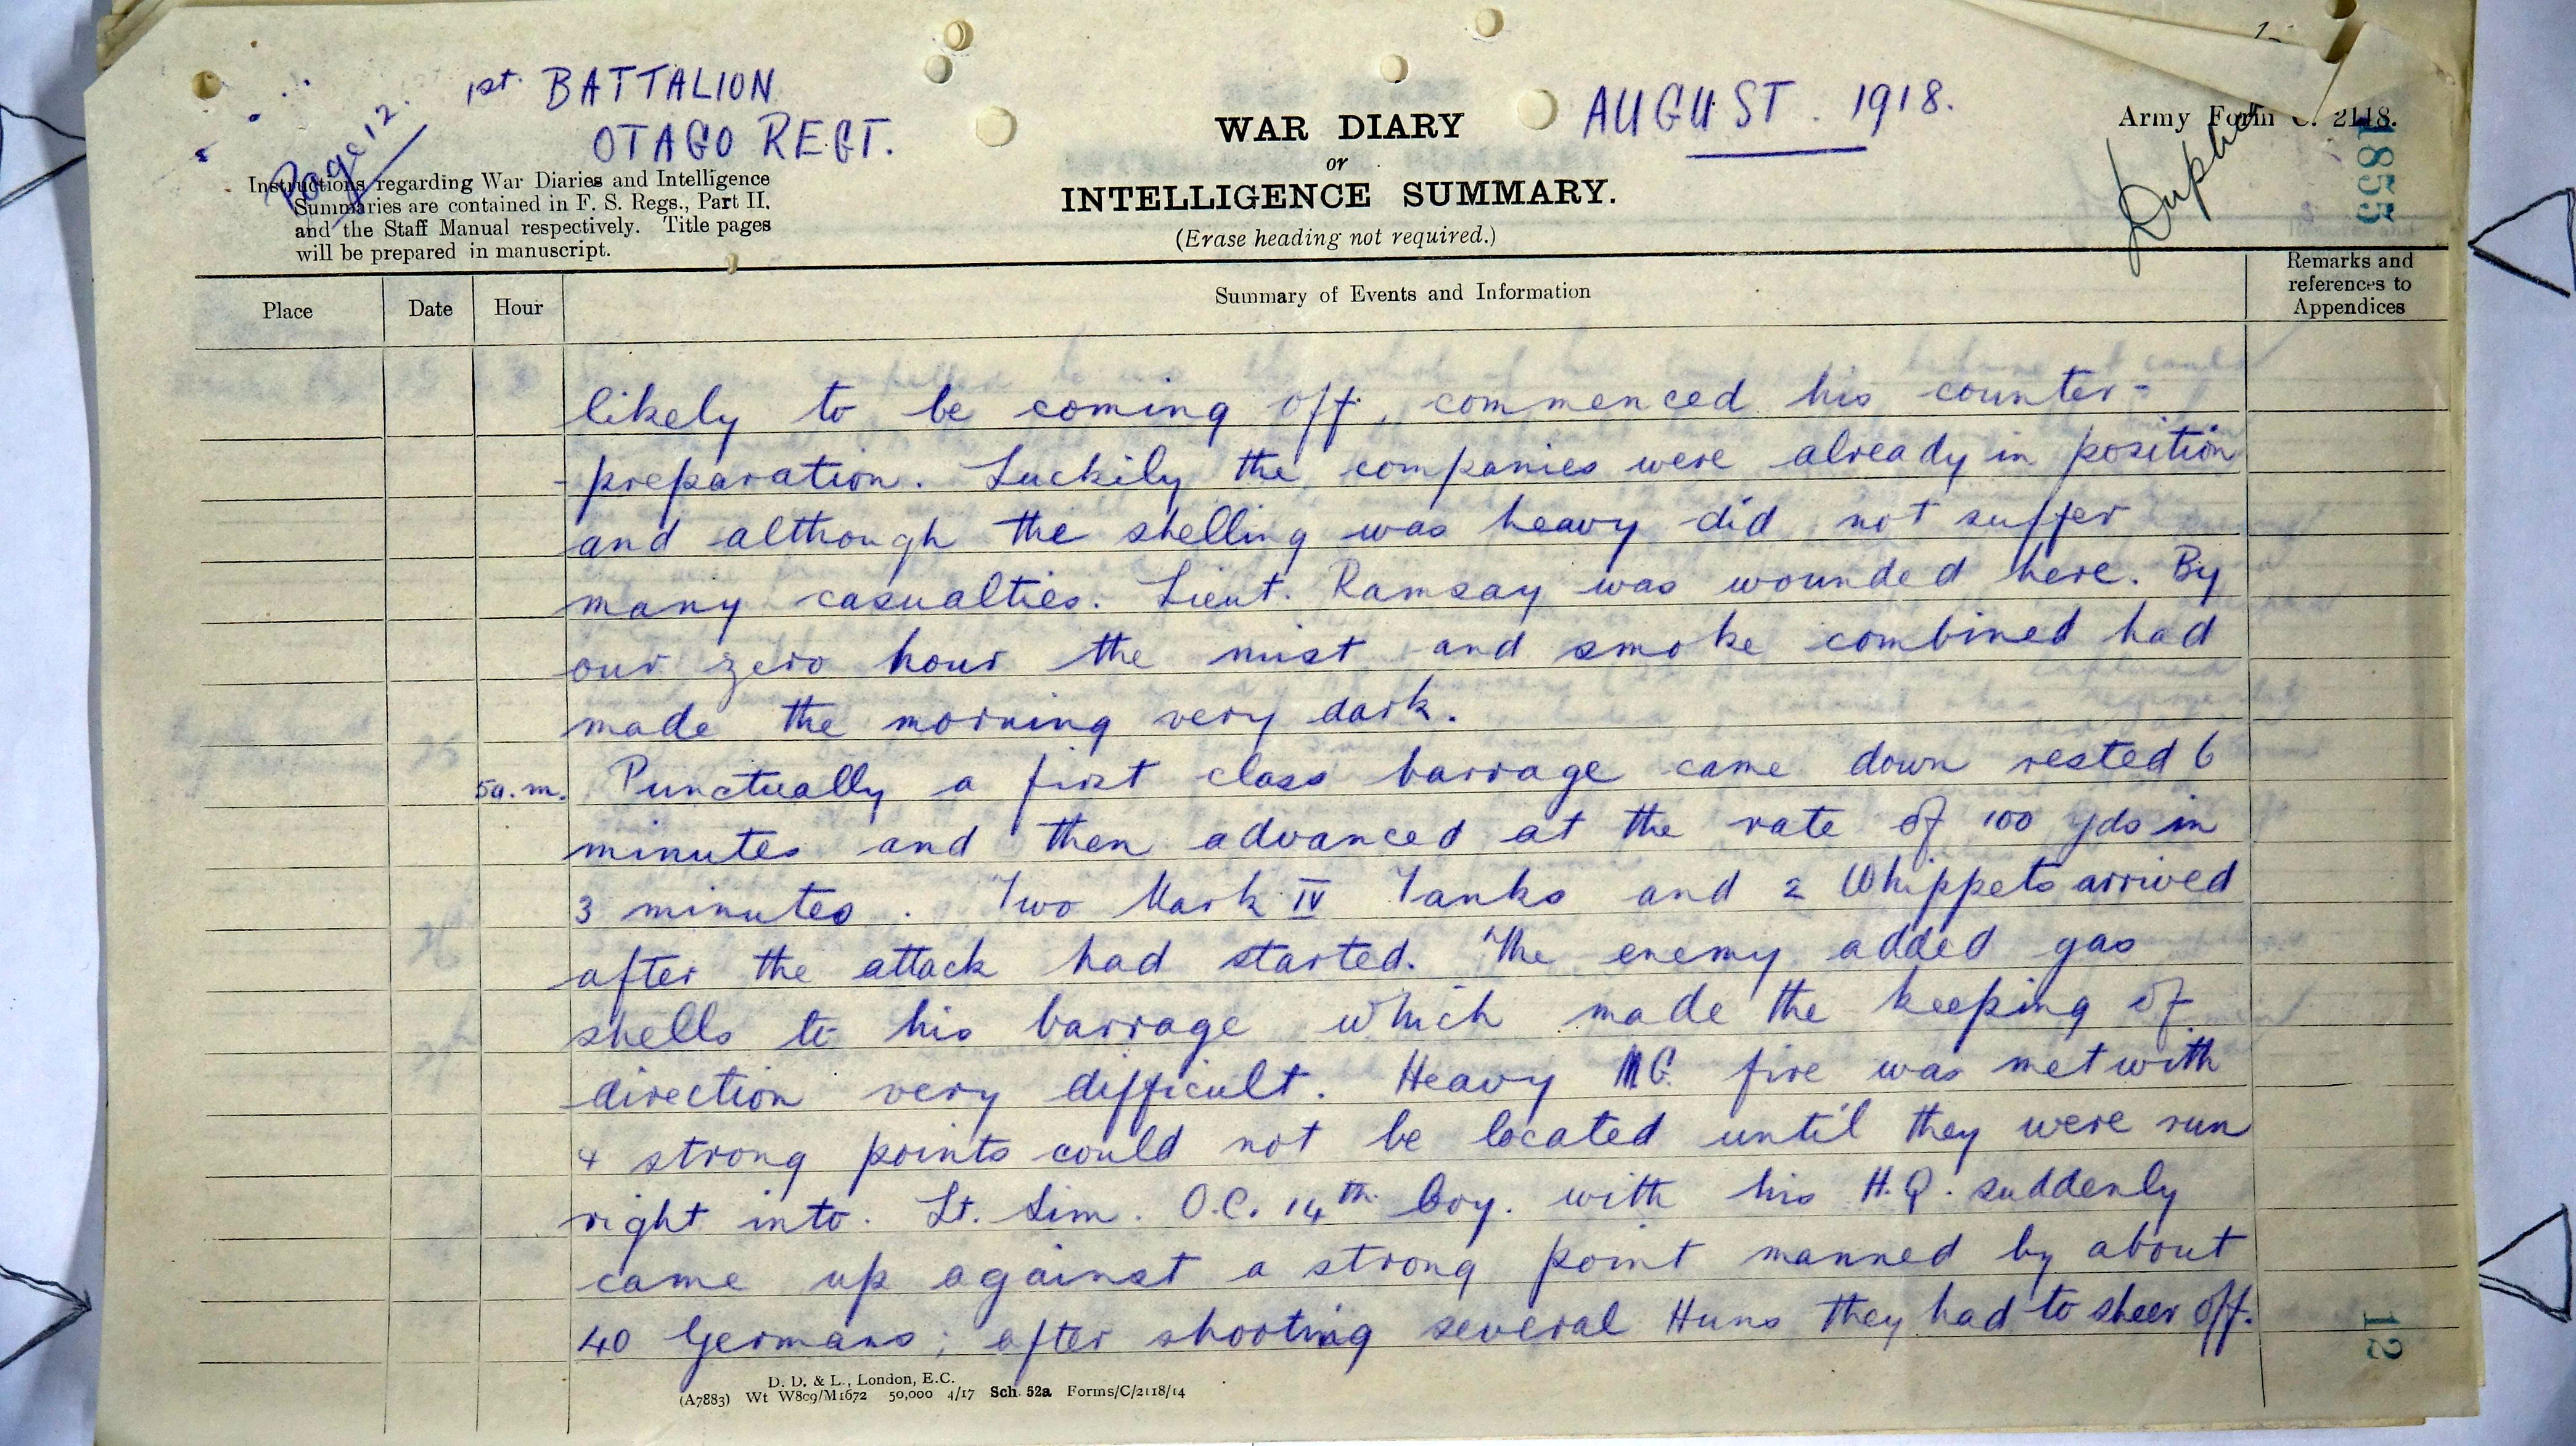 Page 12.
1st. BATTALION
OTAGO REGT.
AUGUST. 1918.
WAR DIARY
or
INTELLIGENCE SUMMARY.
(Erase heading not required.)
Army Form C. 2118.
1855
Instructions regarding War Diaries and Intelligence
Summaries are contained in F. S. Regs., Part II.
and the Staff Manual respectively. Title pages
will be prepared in manuscript.
Place
Date
Hour
Summary of Events and Information
Remarks and
references to
Appendices
likely to be coming off, commenced his counter-
-preparation. Luckily the companies were already in position
and although the shelling was heavy did not suffer
many casualties. Lieut. Ramsay was wounded here. By
our zero hour the mist and smoke combined had
made the morning very dark.
5a.m. Punctually a first class barrage came down rested 6
minutes and then advanced at the rate of 100 yds in
3 minutes. Two Mark IV Tanks and 2 Whippets arrived
after the attack had started. The enemy added gas
shells to his barrage which made the keeping of
direction very difficult. Heavy MG. fire was met with
& strong points could not be located until they were run
right into. Lt. Sim. O.C. 14th Coy. with his H.Q. suddenly
came up against a strong point manned by about
40 Germans; after shooting several Huns they had to sheer off.
12
D. D. & L., London, E.C.
(A7883) Wt W809/M1672 50,000 4/17 Sch. 52a Forms/C/2118/14